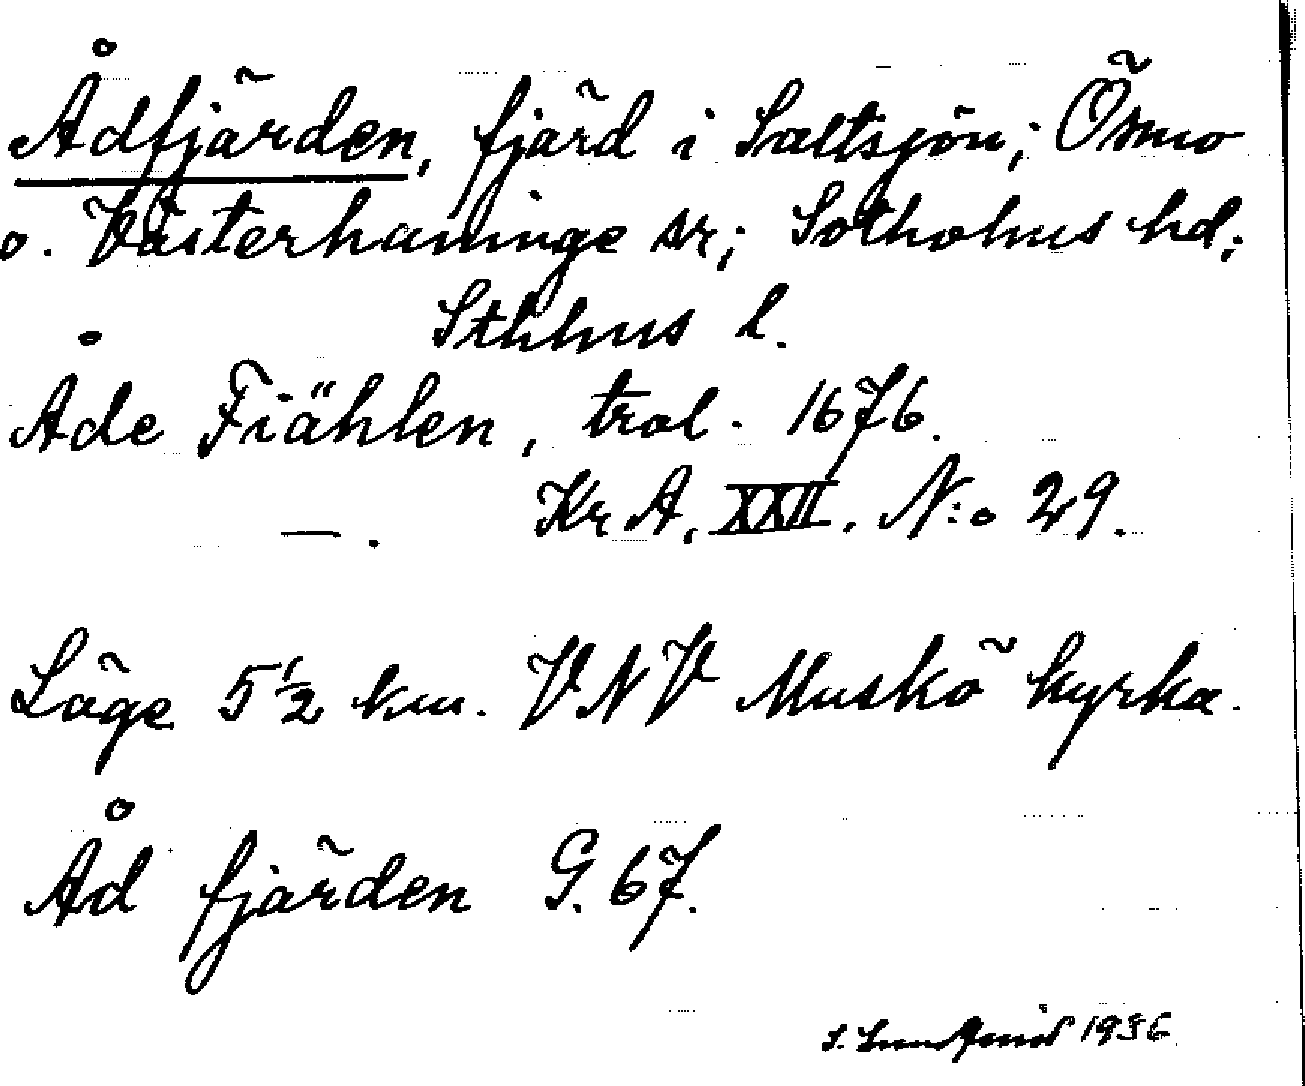 Ådfjärden, fjärd i Saltsjön; Ösmo
o. Västerhaninge sr; Sotholms hd;
Sthlms l.
Åde Fiählen, trol. 1676.
—. Kr A, XXII. N:o 29.
Läge 5 1/2 km. VNV Muskö kyrka.
Åd fjärden G. 67.
S. 1936